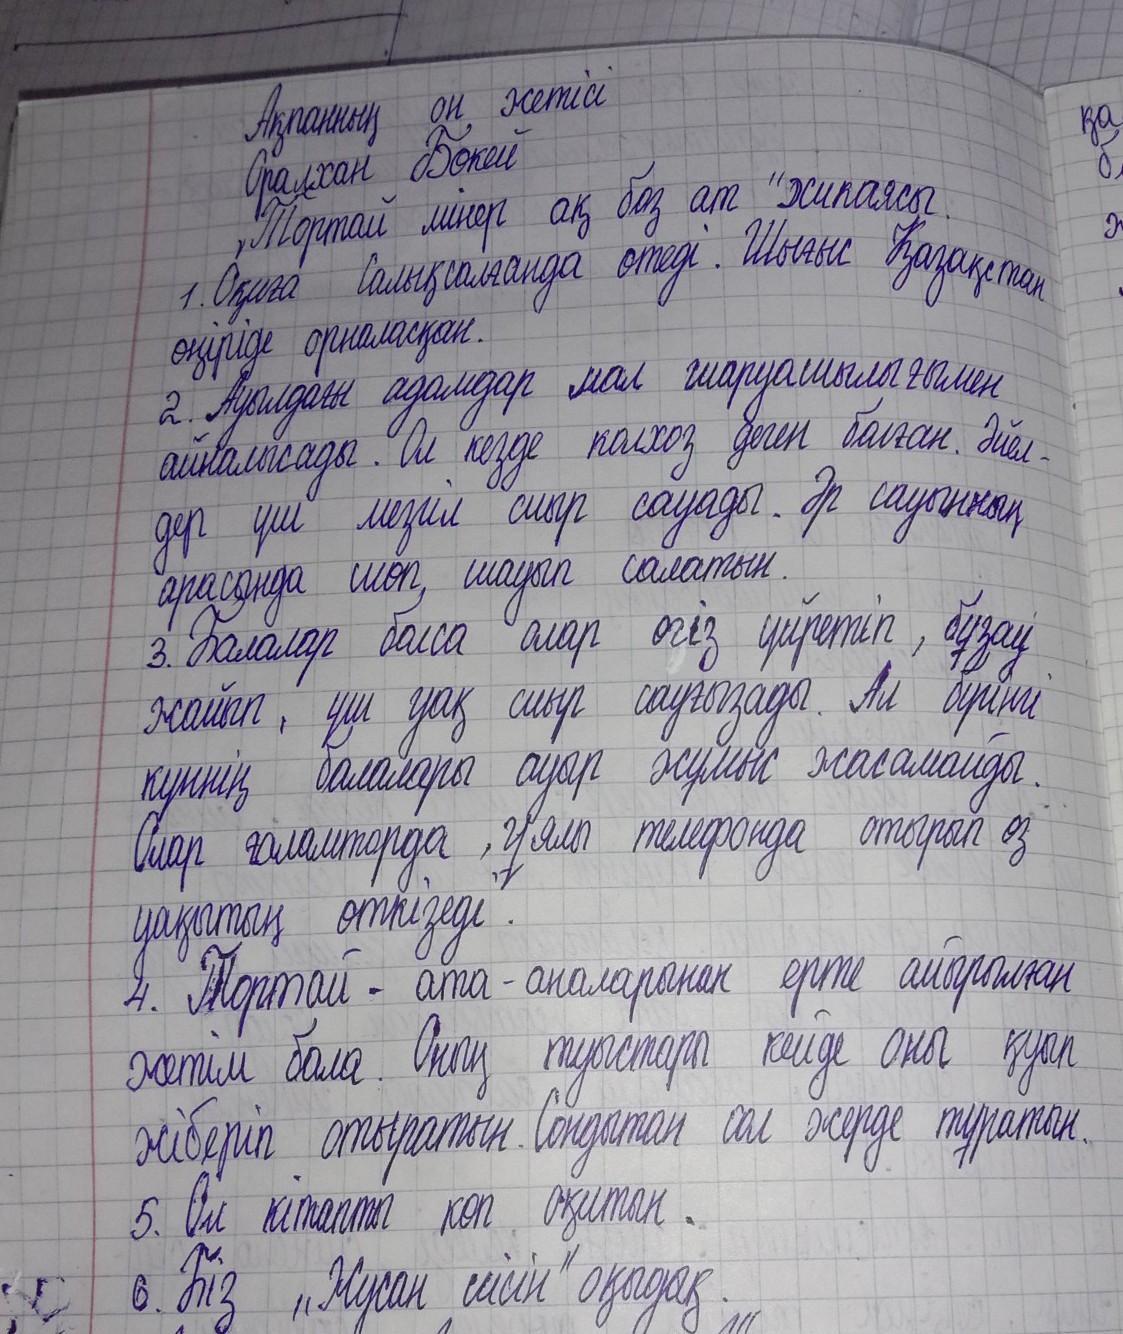 Ақпанның он жетісі
Оралхан Бөкей
„Тортай мінер ақ боз ат" хикаясы.
1. Оқиға Салықсалғанда өтеді. Шығыс Қазақстан
өңіріде орналасқан.
2. Ауылдағы адамдар мал шаруашылығымен
айналысады. Ол кезде колхоз деген болған. Әйел-
дер үш мезгіл сиыр сауады. Әр сауынның
арасында шөп шауып салатын.
3. Балалар болса олар өгіз үйретіп, бұзау
жайып, үш уақ сиыр сауғызады. Ал бүгінгі
күннің балалары ауыр жұмыс жасамайды.
Олар ғаламторда, ұялы телефонда отырып өз
уақытың өткізеді.
4. Тортай - ата-аналарынан ерте айырылған
жетім бала. Оның туыстары кейде оны қуып
жіберіп отыратын. Сондытан сол жерде тұратын.
5. Ол кітапты көп оқитын.
6. Біз „Жусан сиісін" оқыдақ.